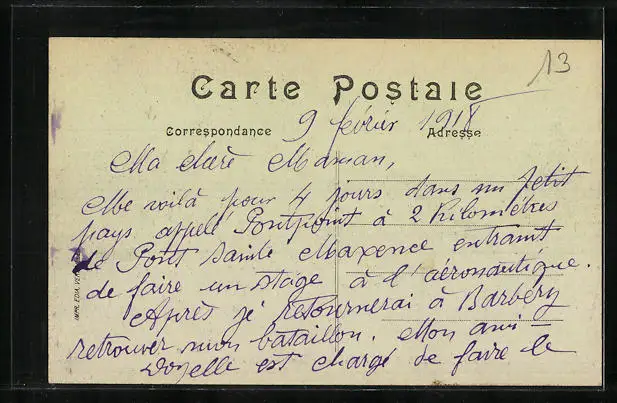 13
Carte Postale
9 février 1918
Correspondance
Adresse
Ma chère Maman,
Me voilà pour 4 jours dans un petit
pays appelé Pontpoint à 2 kilomètres
de Pont Sainte Maxence entrant
de faire un stage à l'aéronautique.
Après je retournerai à Barbéry
retrouver mon bataillon. Mon ami
Doyelle est chargé de faire le